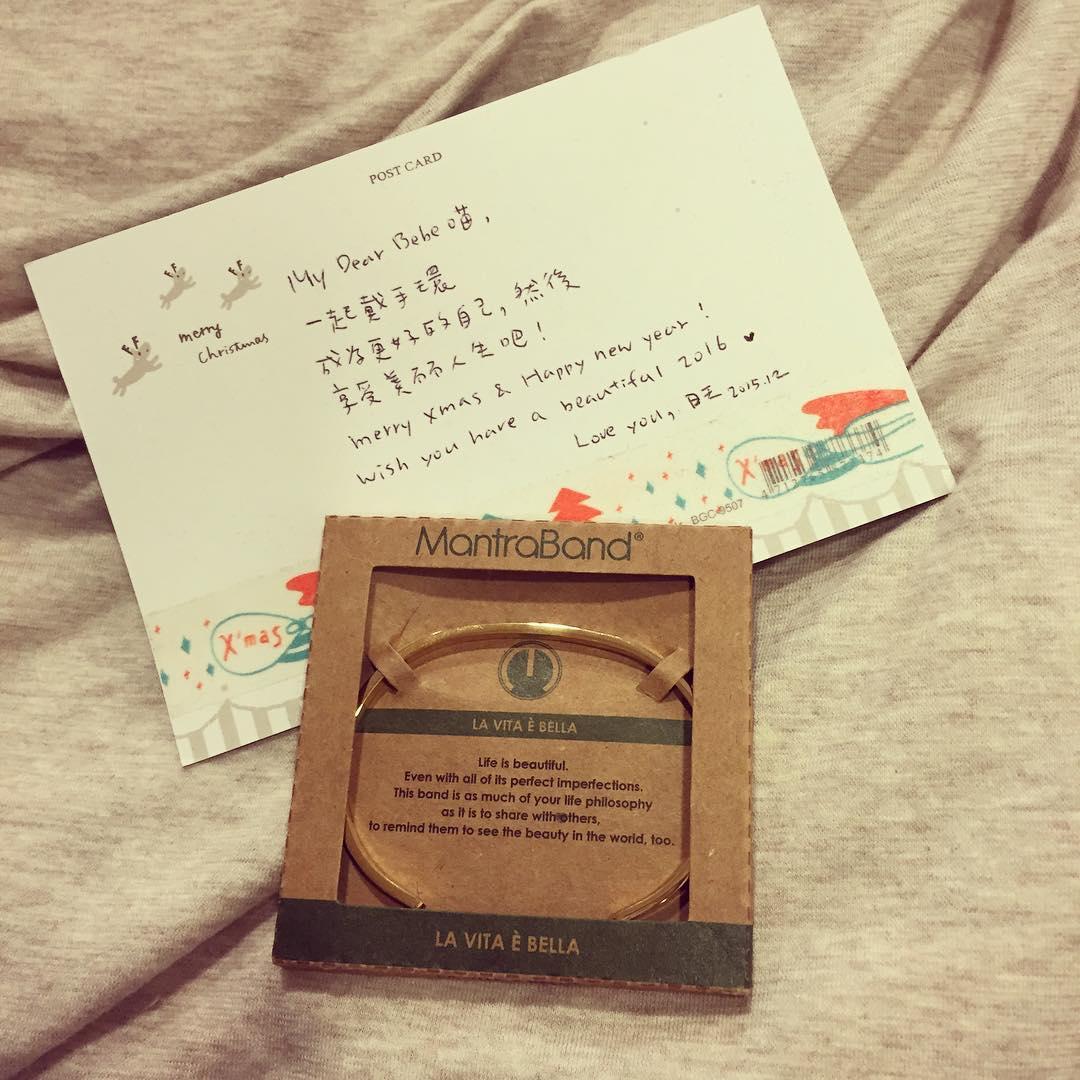 POST CARD
merry
christmas
My Dear Bebe喵,
一起戴手環
成為更好的自己, 然後
享受美不不人生吧!
merry xmas & Happy new year!
Wish you have a beautiful 2016 ♥
Love you, 2015.12
X'mas
BGC-9507
X'mas
MantraBand®
LA VITA È BELLA
Life is beautiful.
Even with all of its perfect imperfections.
This band is as much of your life philosophy
as it is to share with others,
to remind them to see the beauty in the world, too.
LA VITA È BELLA